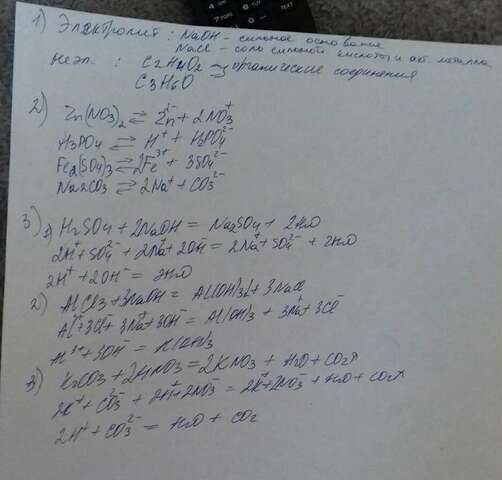 1) Электролит: NaOH - сильное основание
NaCl - соль сильной кислоты и акт. металла
Неэл.: C2H4O2 ⇒ органические соединения
C3H6O
2) Zn(NO3)2 ⇄ Zn²⁻ + 2NO3⁺
H3PO4 ⇄ H⁺ + H3PO4²⁻
Fe2(SO4)3 ⇄ 2Fe³⁺ + 3SO4²⁻
Na2CO3 ⇄ 2Na⁺ + CO3²⁻
3) 1) H2SO4 + 2NaOH = Na2SO4 + 2H2O
2H⁺ + SO4²⁻ + 2Na⁺ + 2OH⁻ = 2Na⁺ + SO4²⁻ + 2H2O
2H⁺ + 2OH⁻ = 2H2O
2) AlCl3 + 3NaOH = Al(OH)3↓ + 3NaCl
Al³⁺ + 3Cl⁻ + 3Na⁺ + 3OH⁻ = Al(OH)3 + 3Na⁺ + 3Cl⁻
Al³⁺ + 3OH⁻ = Al(OH)3
3) K2CO3 + 2HNO3 = 2KNO3 + H2O + CO2↑
2K⁺ + CO3²⁻ + 2H⁺ + 2NO3⁻ = 2K⁺ + 2NO3⁻ + H2O + CO2↑
2H⁺ + CO3²⁻ = H2O + CO2